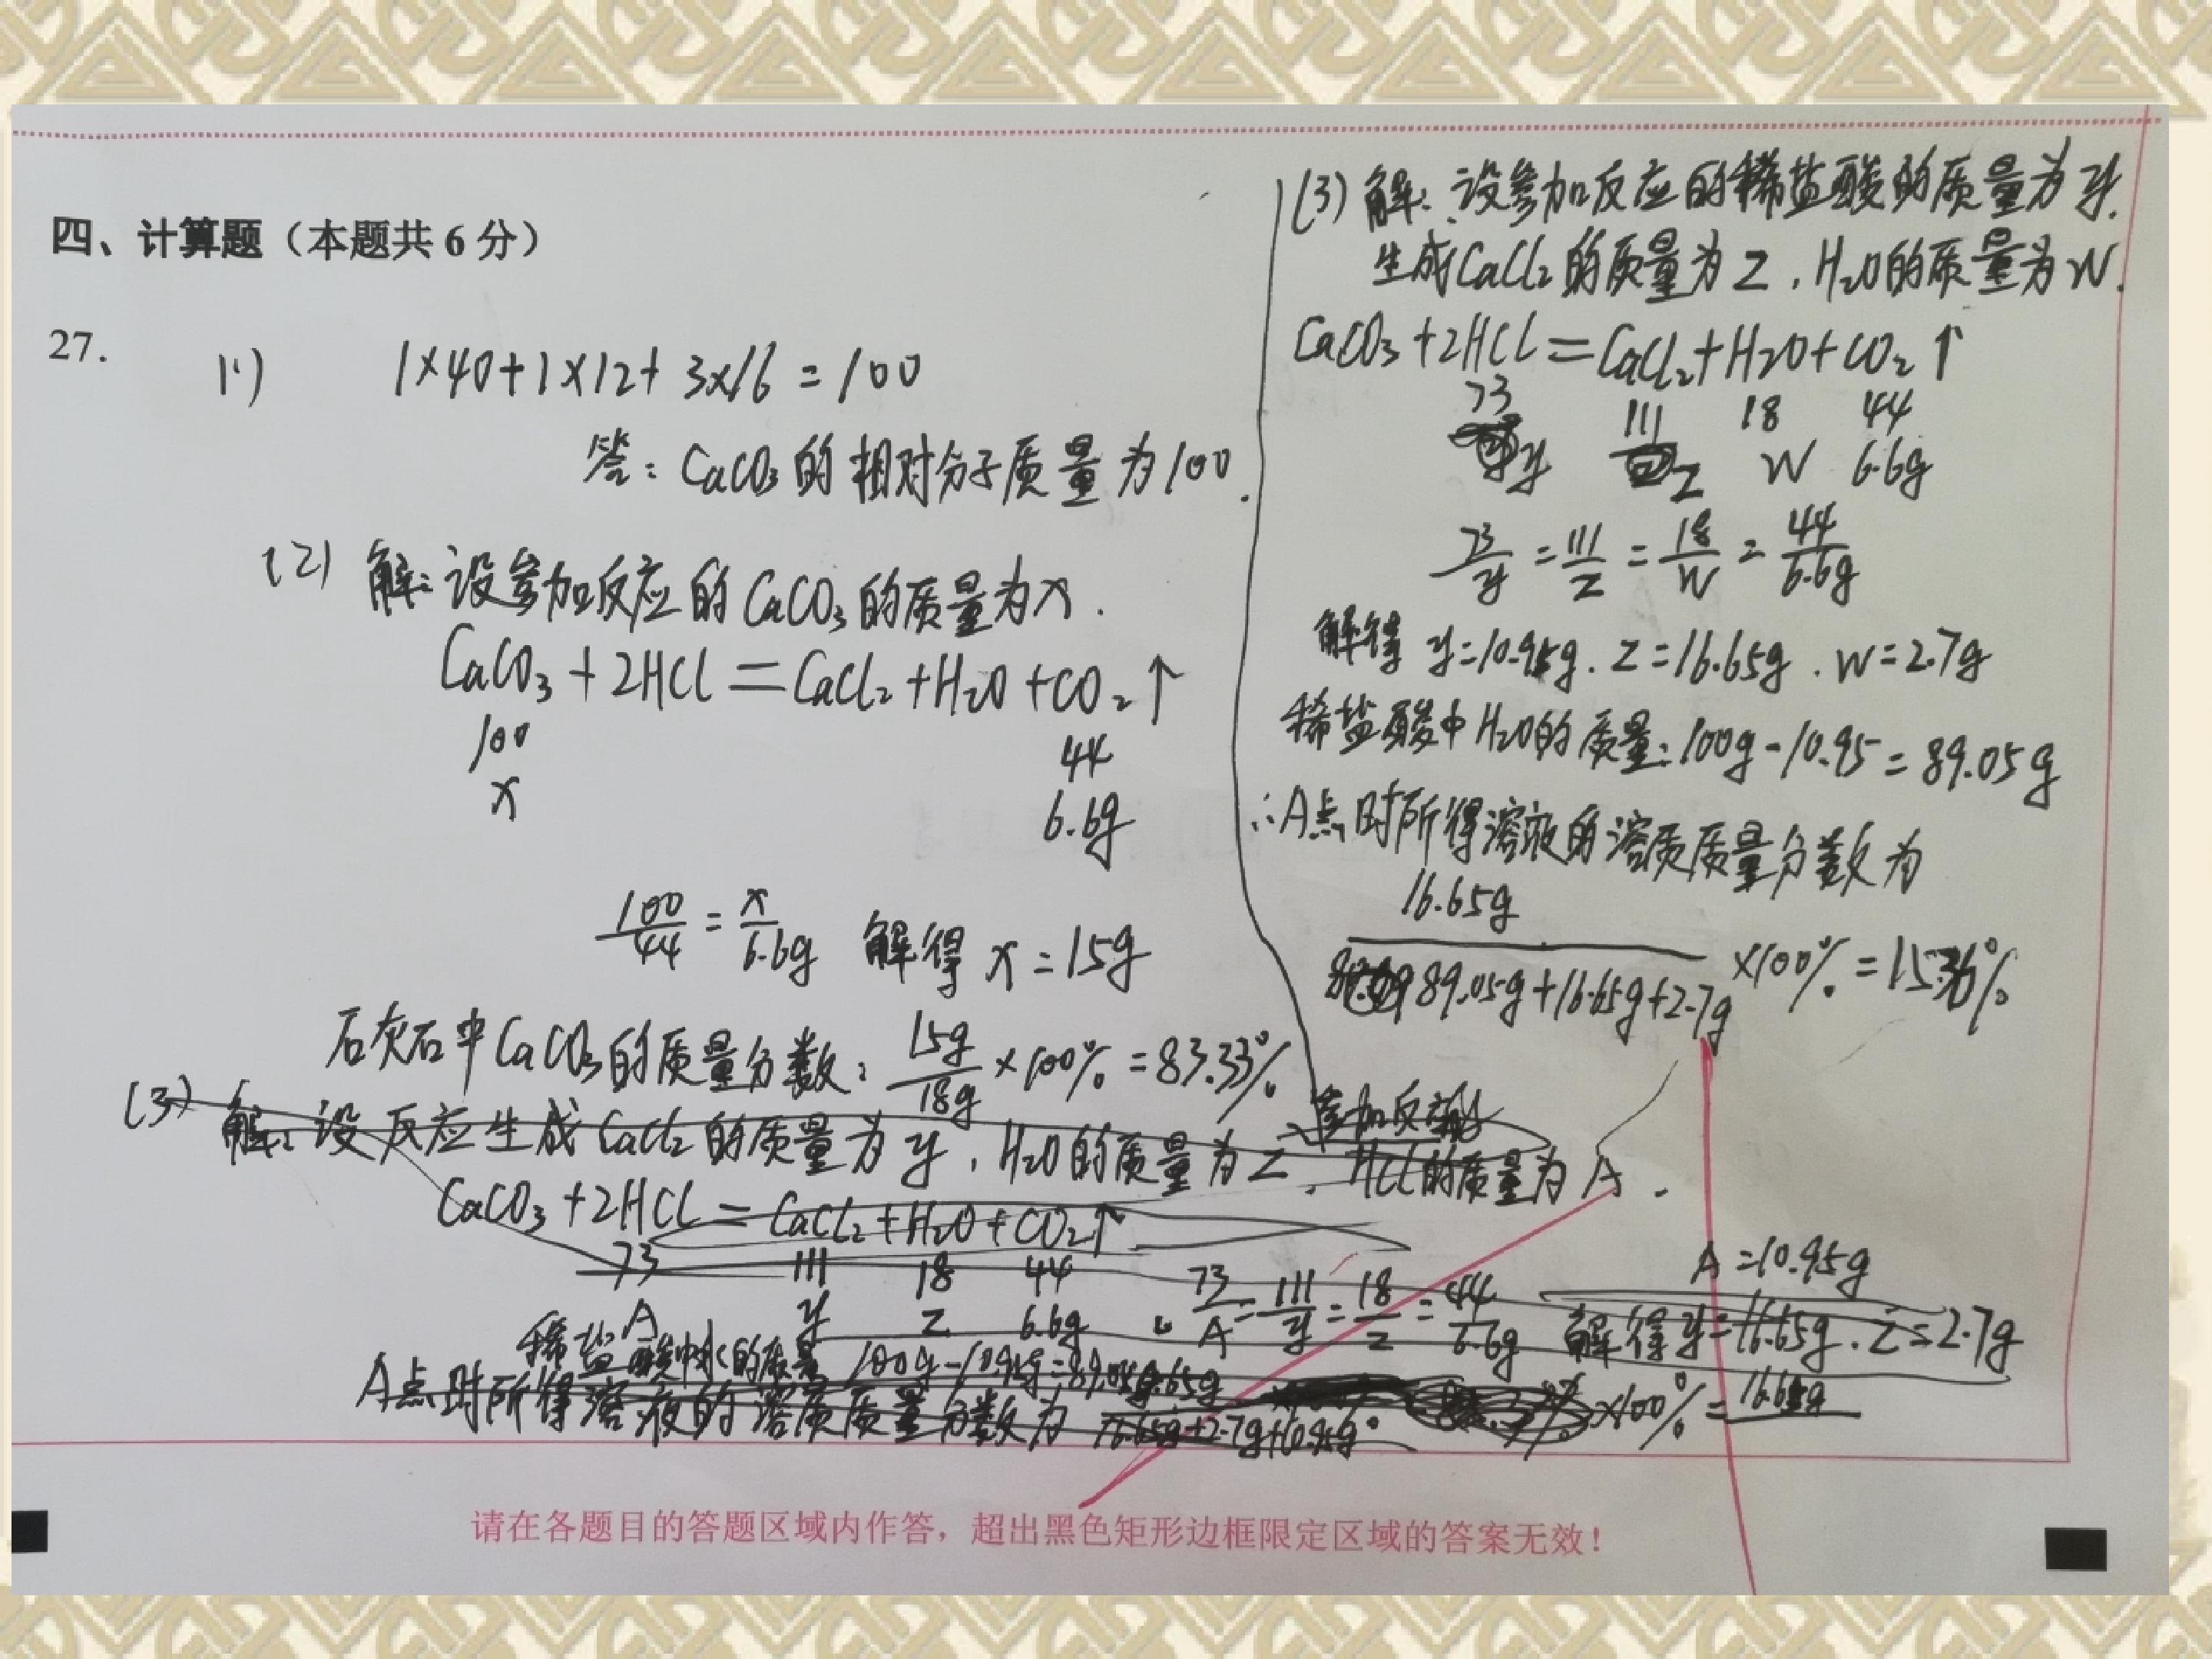 四、计算题（本题共 6 分）
27.
(1) 1×40+1×12+3×16=100
答：CaCO₃的相对分子质量为100.
(2) 解：设参加反应的CaCO₃的质量为x.
CaCO₃+2HCl=CaCl₂+H₂O+CO₂↑
100 44
x 6.6g
100/44=x/6.6g 解得 x=15g
石灰石中CaCO₃的质量分数：15g/18g×100%=83.33%
(3) 解：设反应生成CaCl₂的质量为y，H₂O的质量为z，参加反应 HCl的质量为A.
CaCO₃+2HCl=CaCl₂+H₂O+CO₂↑
73 111 18 44
A y z 6.6g
73/A=111/y=18/z=44/6.6g
A=10.95g
解得y=16.65g.z=2.7g
稀盐酸中水的质量 100g-10.95g=89.05g
A点时所得溶液的溶质质量分数为 16.65g/16.65g+2.7g+10.95g ×100%=16.65g
(3) 解：设参加反应的稀盐酸的质量为y.
生成CaCl₂的质量为z，H₂O的质量为w.
CaCO₃+2HCl=CaCl₂+H₂O+CO₂↑
73 111 18 44
y z w 6.6g
73/y=111/z=18/w=44/6.6g
解得 y=10.95g.z=16.65g.w=2.7g
稀盐酸中H₂O的质量：100g-10.95=89.05g
∴A点时所得溶液的溶质质量分数为
16.65g/89.05g+16.65g+2.7g ×100%=15.36%
请在各题目的答题区域内作答，超出黑色矩形边框限定区域的答案无效！